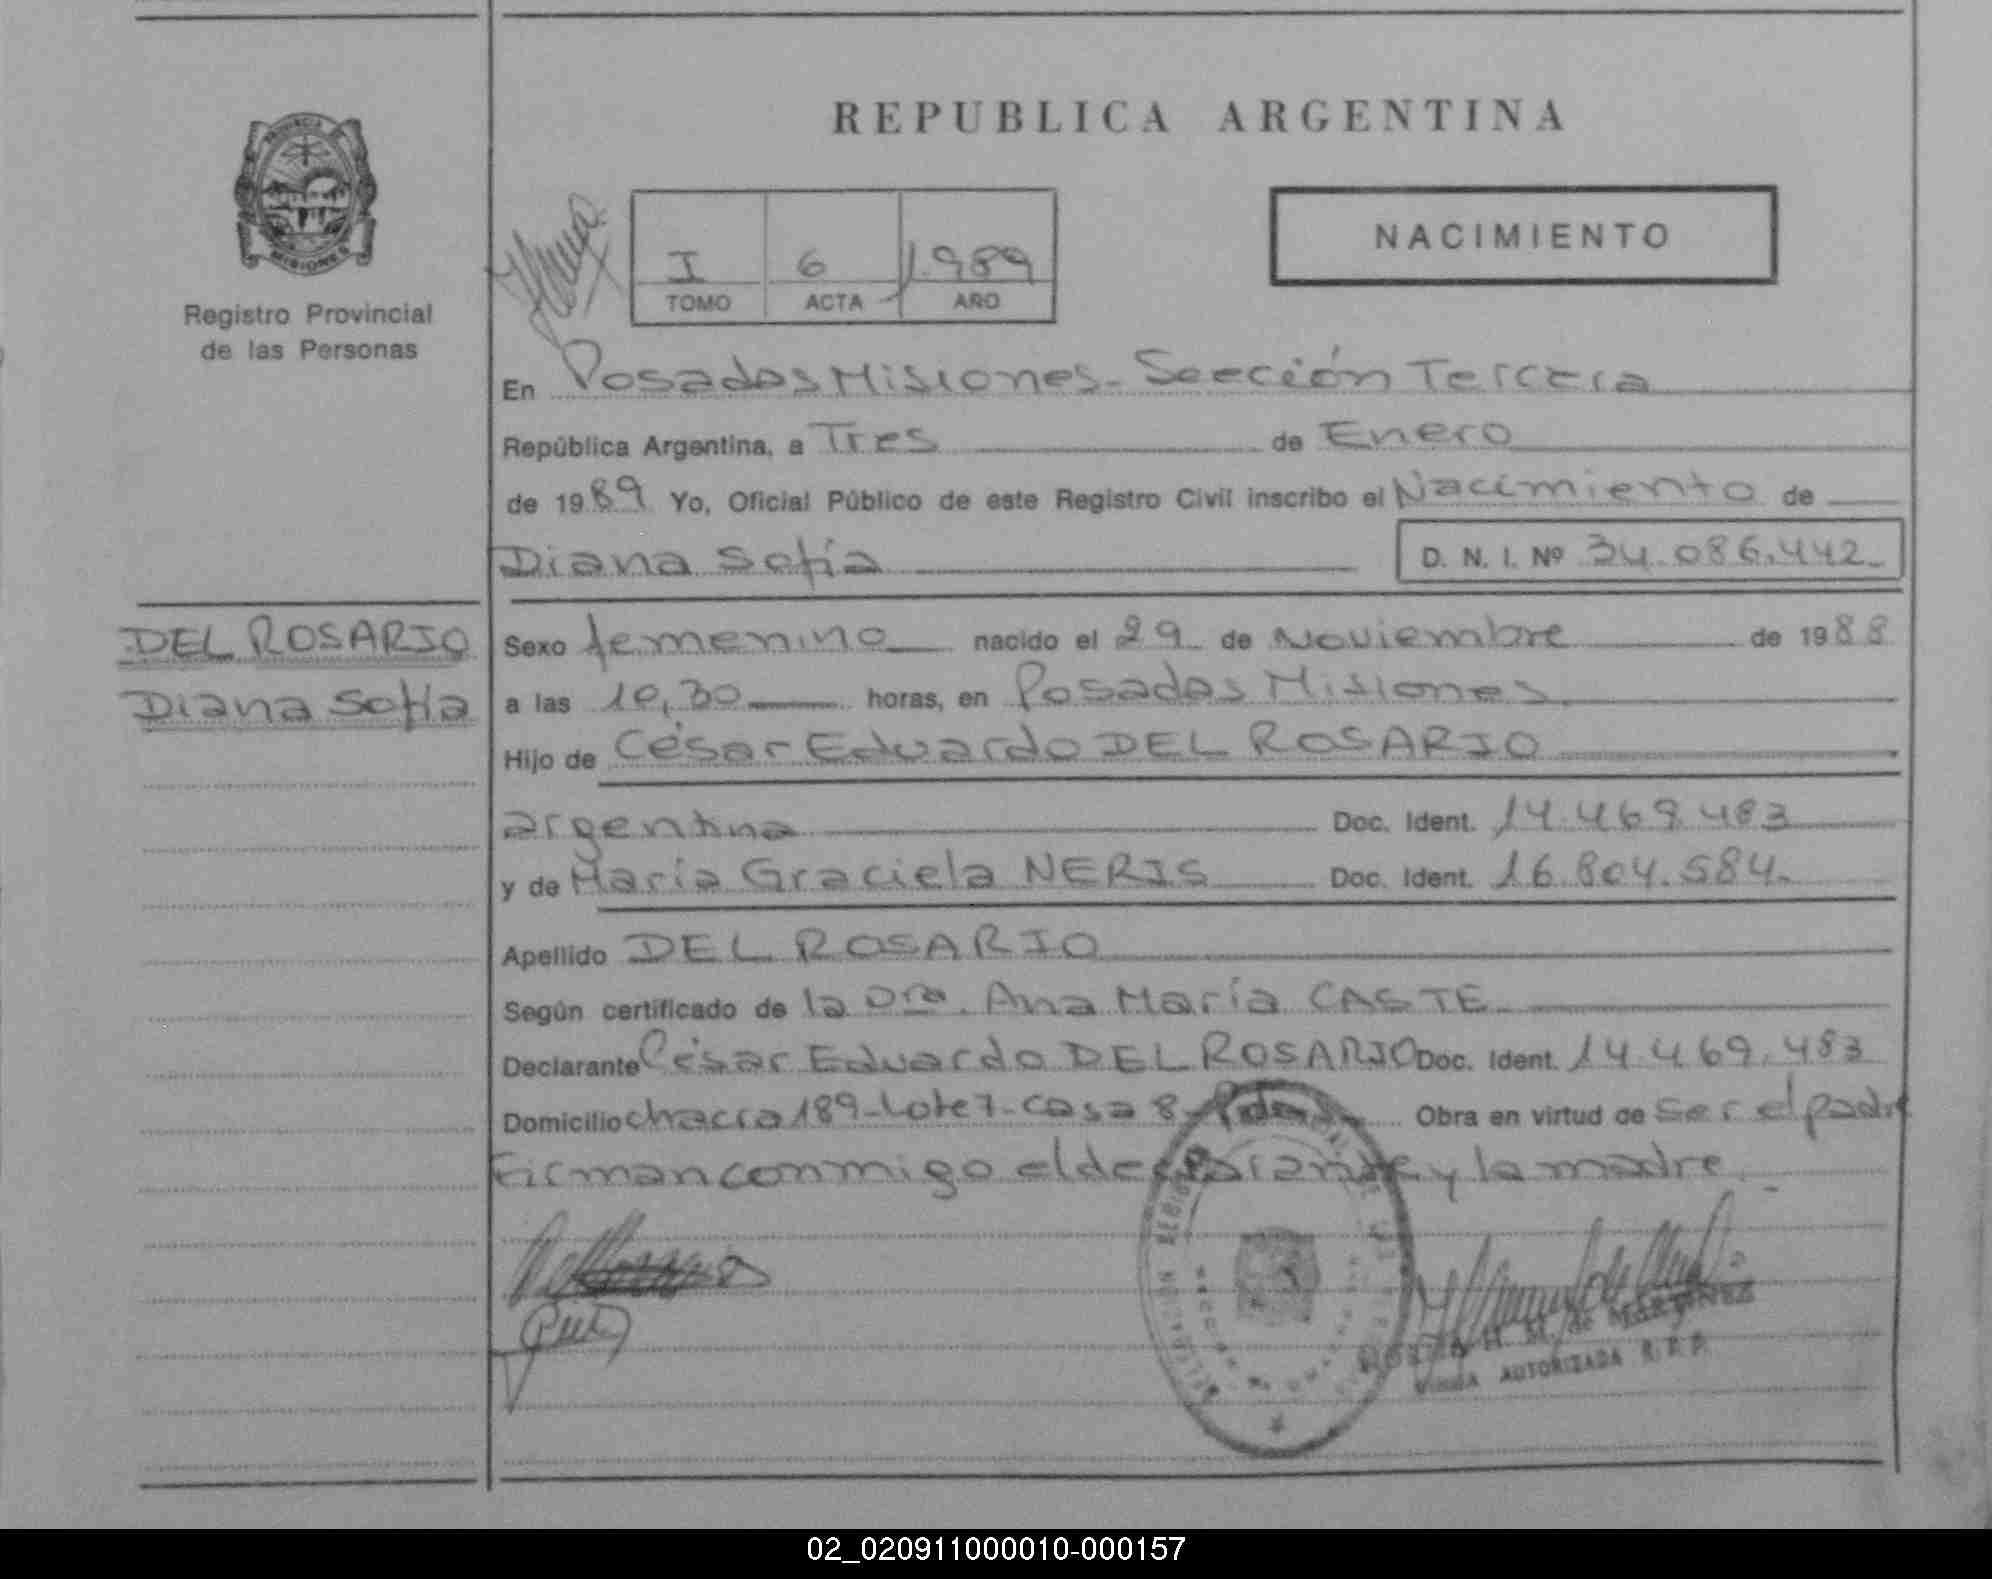 REPUBLICA ARGENTINA
PROVINCIA
MISIONES
Registro Provincial
de las Personas
NACIMIENTO
I 6 1.989
TOMO ACTA AÑO
En Posadas Misiones - Sección Tercera
República Argentina, a Tres de Enero
de 1989 Yo, Oficial Público de este Registro Civil inscribo el Nacimiento de
Diana Sofía D. N. I. Nº 34.086.442.
DEL ROSARIO
Diana Sofía
Sexo femenino nacido el 29 de Noviembre de 1988
a las 10,30 horas, en Posadas Misiones
Hijo de César Eduardo DEL ROSARIO
argentina Doc. Ident. 14.469.483
y de María Graciela NERIS Doc. Ident. 16.804.584.
Apellido DEL ROSARIO
Según certificado de la Dra. Ana María CASTE
Declarante César Eduardo DEL ROSARIO Doc. Ident. 14.469.483
Domicilio chacra 189 - Lote 7 - casa 8 - Obra en virtud de ser el padre
Firman conmigo el declarante y la madre
M. de MARTINEZ
AUTORIZADA R. P. P.
02_020911000010-000157